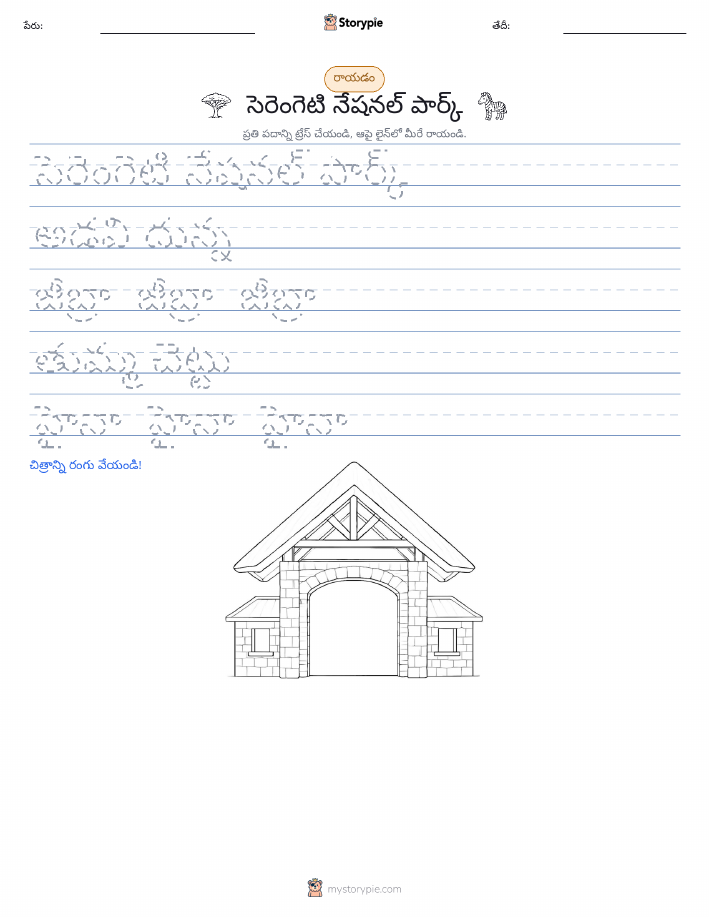 పేరు:
Storypie
తేదీ:
రాయడం
సెరెంగెటి నేషనల్ పార్క్
ప్రతి పదాన్ని ట్రేస్ చేయండి, ఆపై లైన్‌లో మీరే రాయండి.
సెరెంగెటి నేషనల్ పార్క్
అడవి దున్న
జీబ్రా జీబ్రా జీబ్రా
తుమ్మ చెట్టు
హైనా హైనా హైనా
చిత్రాన్ని రంగు వేయండి!
mystorypie.com